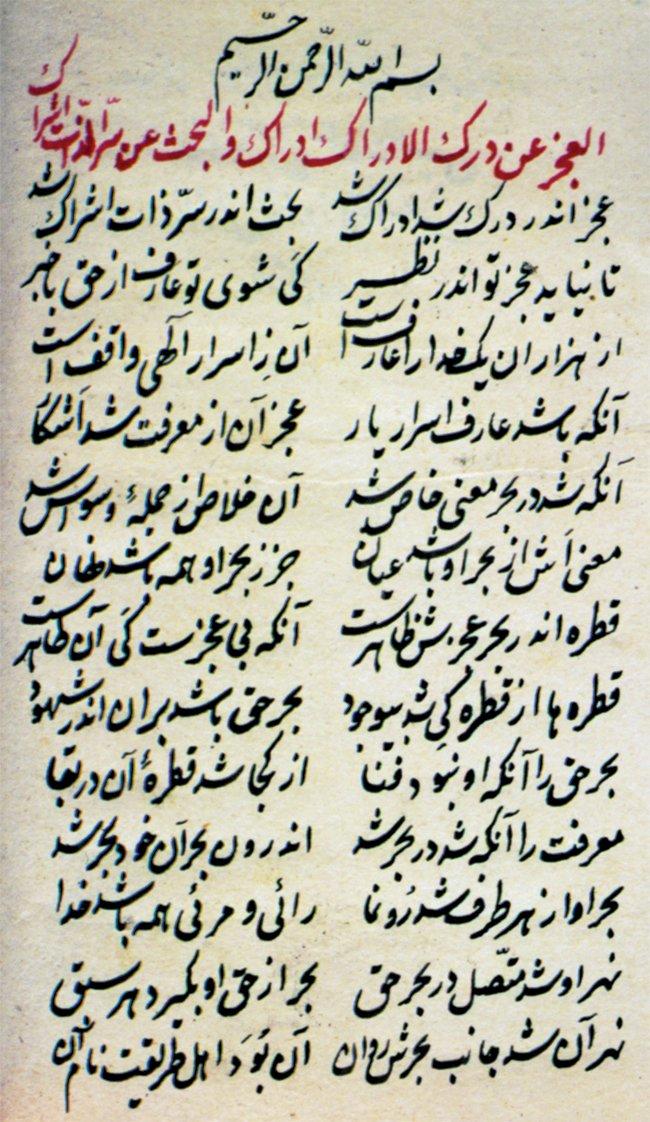 بسم الله الرّحمن الرّحیم
العجز عن درک الادراک ادراک والبحث عن سرّ الذّات اشراک
عجز اندر درک شد ادراک شد    بحث اندر سرّ ذات اشراک شد
تا نیاید عجز تو اندر نظر    کَی شوی تو عارف از حق باخبر
از هزاران یک خدا را عارف است    آن زِ اسرار الٓهی واقف است
آنکه باشد عارف اسرار یار    عجز آن از معرفت شد آشکا
آنکه شد در بحر معنی خاص شد    آن خلاص از جملهٔ وسواس شد
معنی آش از بحر او باشد عیان    جزز بحر او همه باشد نهان
قطره اندر بحر عجزش ظاهرست    آنکه بی عجزست کَی آن طاهرست
قطره ها از قطره کَی شد بیوجود    بحر حق باشد بران اندر شهود
بحر حق را آنکه او نبود فنا    از کجا شد قطرهٔ آن در بقا
معرفت را آنکه شد در بحر شد    اندرون بحر آن خود بحر شد
بحر او از هر طرف شد رُونما    رائی و مرئی همه باشد خدا
نهر او شد متّصل در بحر حق    بحر از حق او بگیرد هر سبق
نهر آن شد جانب بحرش روان    آن بُوَد اهل طریقت نام آن